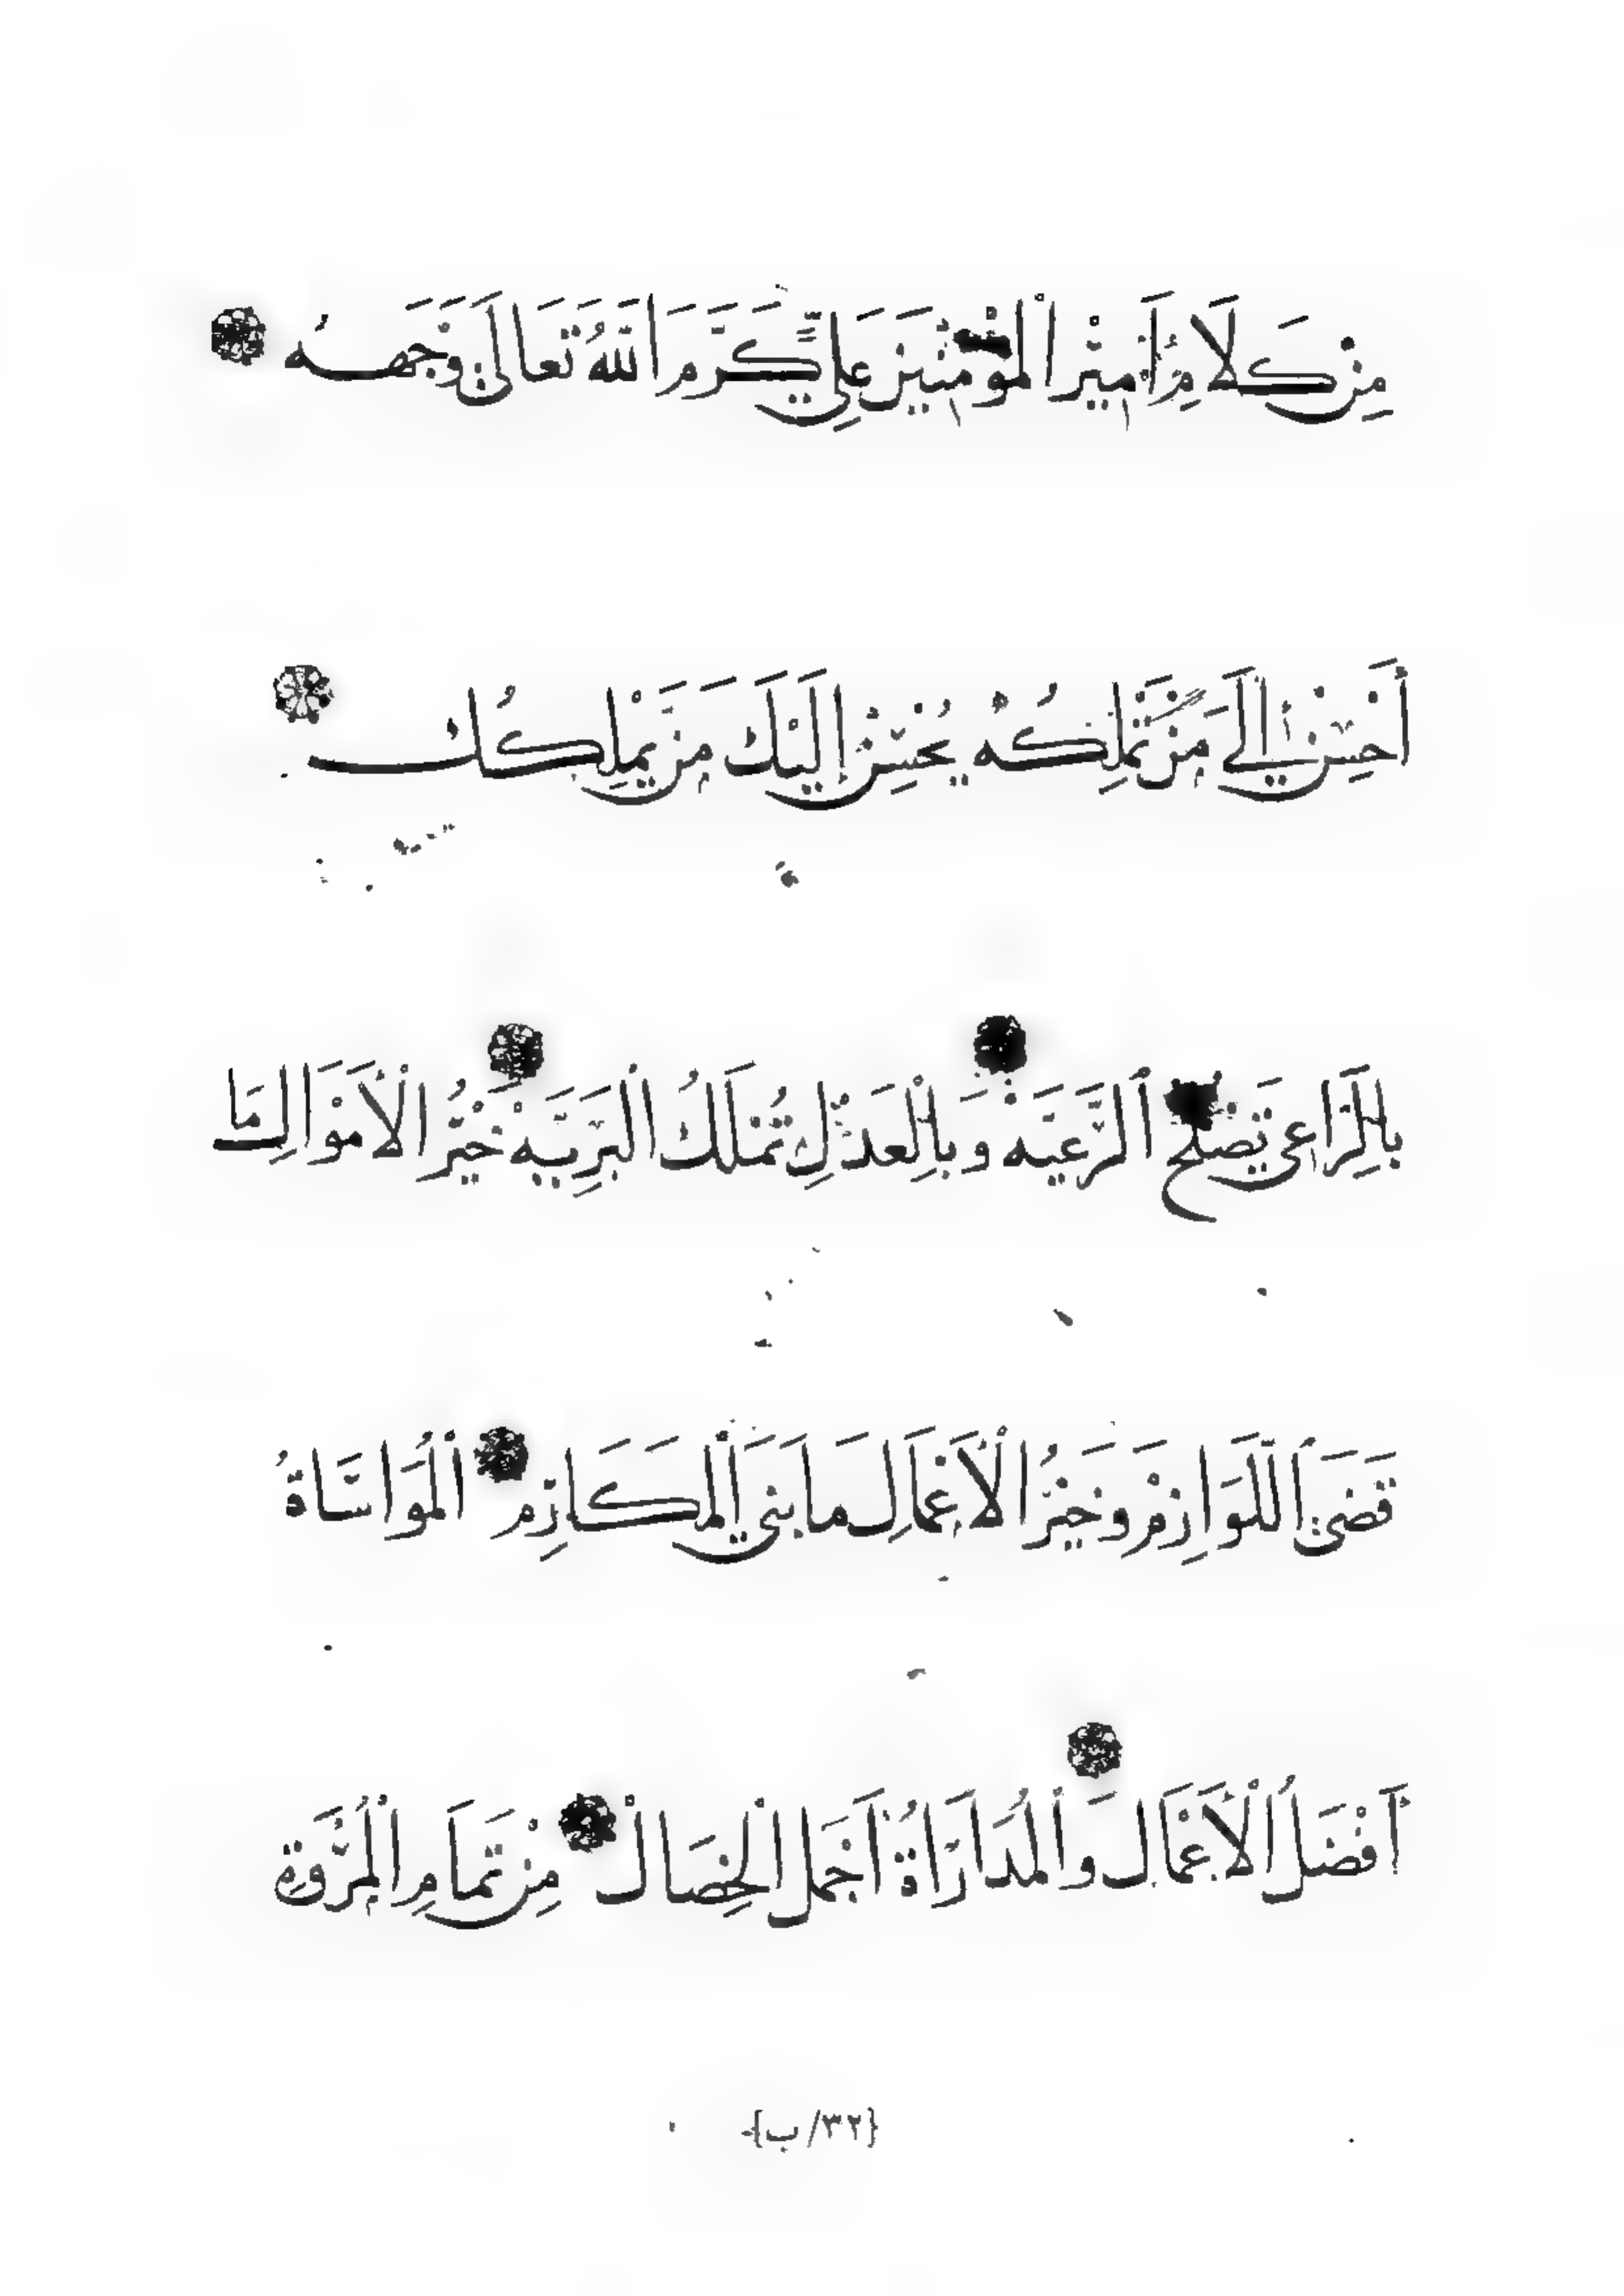 مِنْ كَلَامِ أَمِيْرِ الْمُؤْمِنِيْنَ عَلِيٍّ كَرَّمَ اللّٰهُ تَعَالَىٰ وَجْهَهُ
أَحْسِنْ إِلَىٰ مَنْ تَمْلِكُهُ يُحْسِنْ إِلَيْكَ مَنْ يَمْلِكُكَ
بِالرَّاعِي تَصْلُحُ الرَّعِيَّهْ وَبِالْعَدْلِ تُمْلَكُ الْبَرِيَّهْ خَيْرُ الْأَمْوَالِ مَا
قَضَى اللَّوَازِمْ وَخَيْرُ الْأَعْمَالِ مَا بَنَى الْمَكَارِمِ الْمُوَاسَاةُ
أَفْضَلُ الْأَعْمَالِ وَالْمُدَارَاةُ أَجْمَلُ الْخِصَالْ مِنْ تَمَامِ الْمُرُوَّةِ
{٣٢/ب}